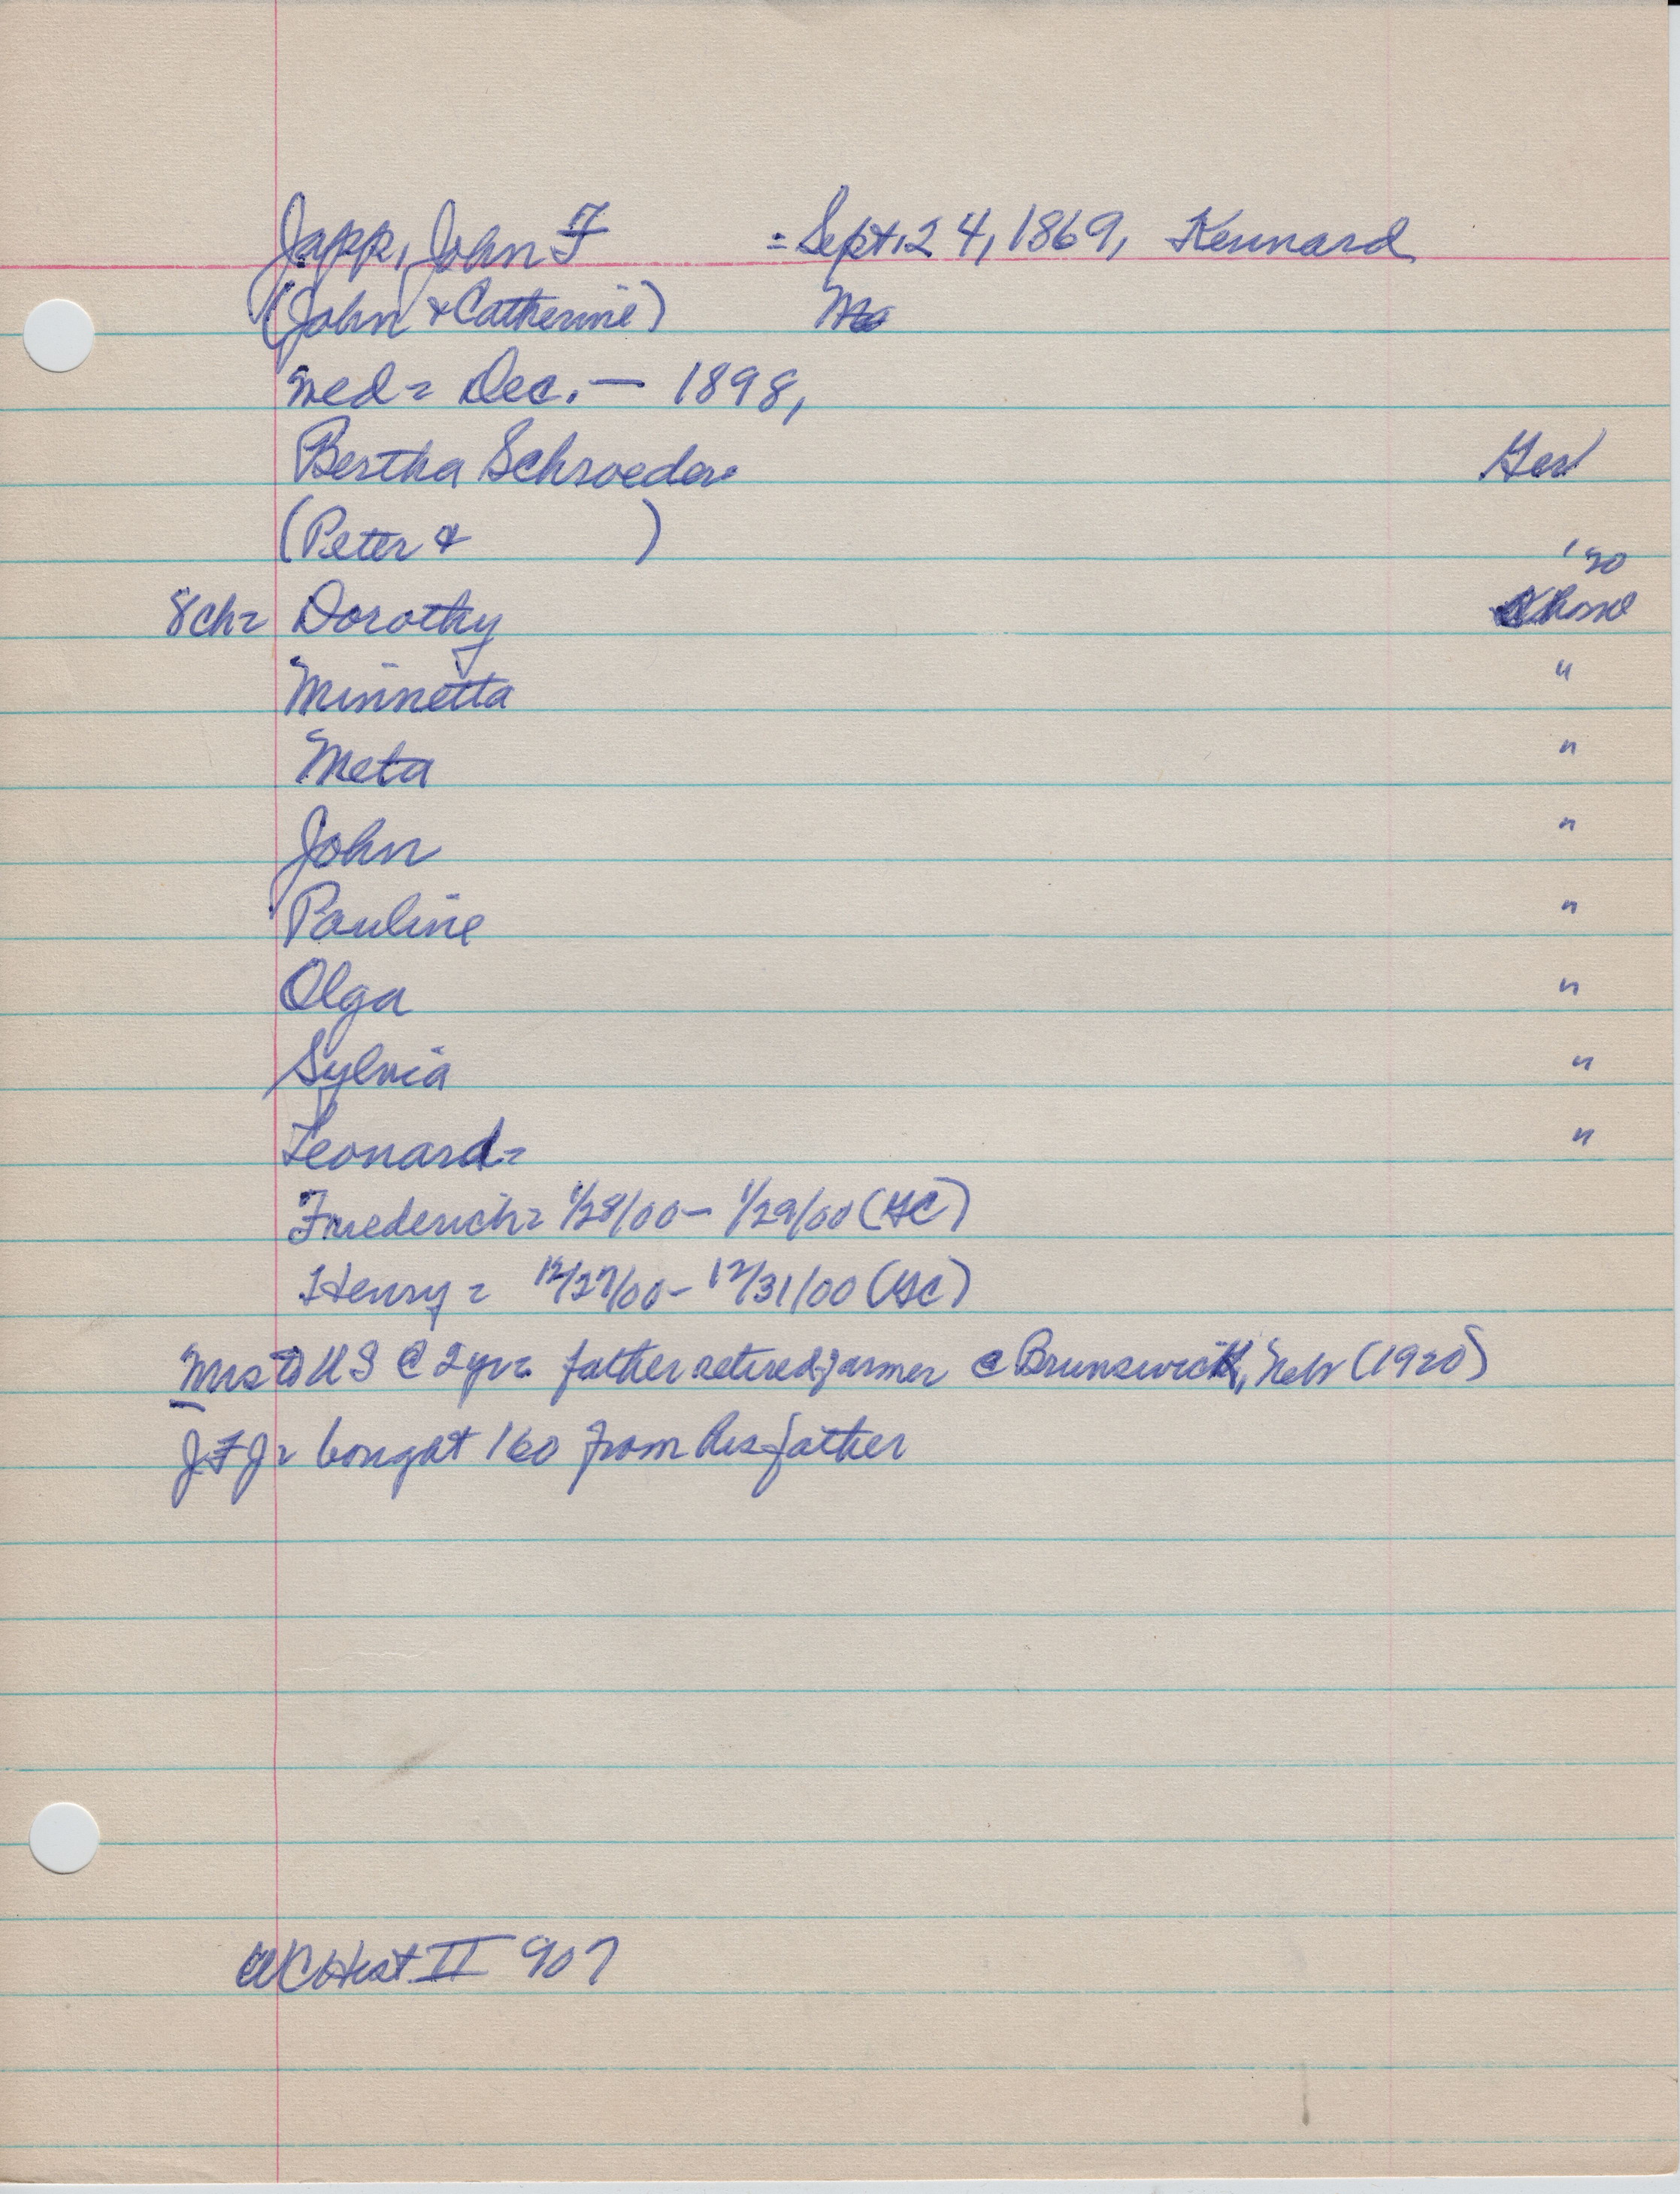 Japp, John F = Sept. 24, 1869, Kennard
(John & Catherine)
wed = Dec. — 1898,
Bertha Schroeder Ger
(Peter & )
'20
8ch = Dorothy home
Minnetta "
Meta "
John "
Pauline "
Olga "
Sylvia "
Leonard = "
Friederich = 1/28/00 – 1/29/00 (GC)
Henry = 12/27/00 – 12/31/00 (GC)
Mrs to US @ 2yr = father retired farmer @ Brunswick, Neb (1920)
JFJ = bought 160 from his father
WCHist II 907